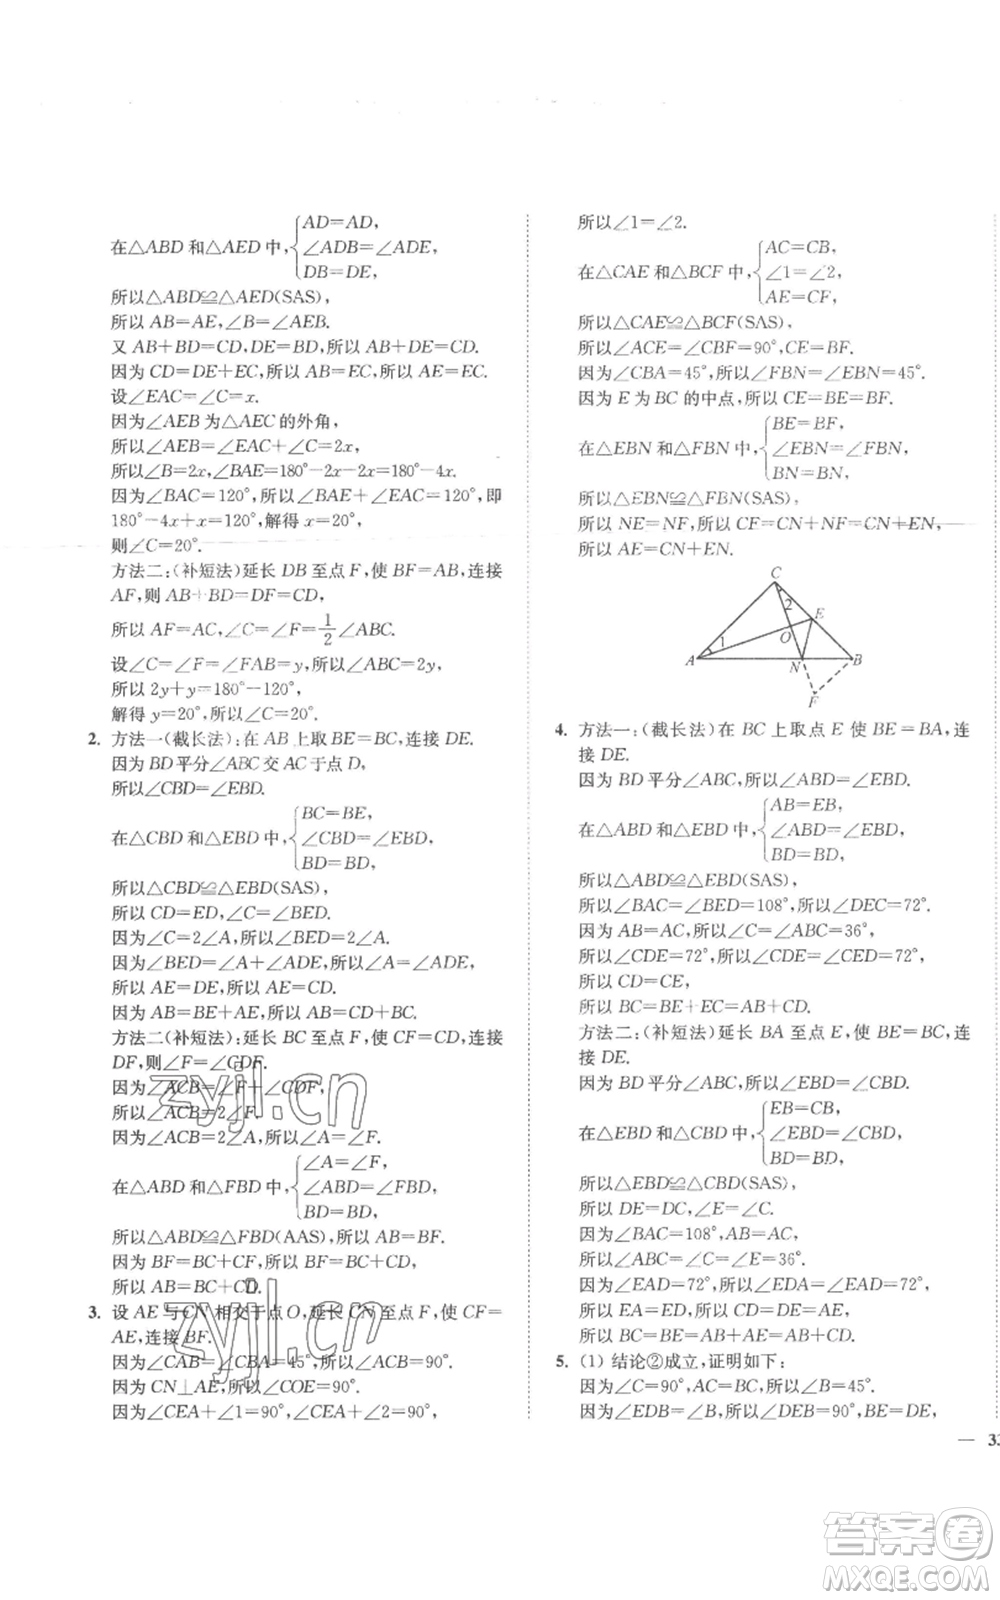 在△ABD 和△AED 中,{AD=AD,
∠ADB=∠ADE,
DB=DE,
所以△ABD≌△AED(SAS),
所以 AB=AE,∠B=∠AEB.
又 AB+BD=CD,DE=BD,所以 AB+DE=CD.
因为 CD=DE+EC,所以 AB=EC,所以 AE=EC.
设∠EAC=∠C=x.
因为∠AEB 为△AEC 的外角,
所以∠AEB=∠EAC+∠C=2x,
所以∠B=2x,∠BAE=180°-2x-2x=180°-4x.
因为∠BAC=120°,所以∠BAE+∠EAC=120°,即
180°-4x+x=120°,解得 x=20°,
则∠C=20°.
方法二:(补短法)延长 DB 至点 F,使 BF=AB,连接
AF,则 AB+BD=DF=CD,
所以 AF=AC,∠C=∠F=1/2∠ABC.
设∠C=∠F=∠FAB=y,所以∠ABC=2y,
所以 2y+y=180°-120°,
解得 y=20°,所以∠C=20°.
2. 方法一(截长法):在 AB 上取 BE=BC,连接 DE.
因为 BD 平分∠ABC 交 AC 于点 D,
所以∠CBD=∠EBD.
在△CBD 和△EBD 中,{BC=BE,
∠CBD=∠EBD,
BD=BD,
所以△CBD≌△EBD(SAS),
所以 CD=ED,∠C=∠BED.
因为∠C=2∠A,所以∠BED=2∠A.
因为∠BED=∠A+∠ADE,所以∠A=∠ADE,
所以 AE=DE,所以 AE=CD.
因为 AB=BE+AE,所以 AB=CD+BC.
方法二(补短法):延长 BC 至点 F,使 CF=CD,连接
DF,则∠F=∠CDF.
因为∠ACB=∠F+∠CDF,
所以∠ACB=2∠F.
因为∠ACB=2∠A,所以∠A=∠F.
在△ABD 和△FBD 中,{∠A=∠F,
∠ABD=∠FBD,
BD=BD,
所以△ABD≌△FBD(AAS),所以 AB=BF.
因为 BF=BC+CF,所以 BF=BC+CD,
所以 AB=BC+CD.
3. 设 AE 与 CN 相交于点 O,延长 CN 至点 F,使 CF=
AE,连接 BF.
因为∠CAB=∠CBA=45°,所以∠ACB=90°.
因为 CN⊥AE,所以∠COE=90°,
因为∠CEA+∠1=90°,∠CEA+∠2=90°,
所以∠1=∠2.
在△CAE 和△BCF 中,{AC=CB,
∠1=∠2,
AE=CF,
所以△CAE≌△BCF(SAS),
所以∠ACE=∠CBF=90°,CE=BF.
因为∠CBA=45°,所以∠FBN=∠EBN=45°.
因为 E 为 BC 的中点,所以 CE=BE=BF.
在△EBN 和△FBN 中,{BE=BF,
∠EBN=∠FBN,
BN=BN,
所以△EBN≌△FBN(SAS),
所以 NE=NF,所以 CF=CN+NF=CN+EN,
所以 AE=CN+EN.
C
2
E
O
1
A
N
B
F
4. 方法一:(截长法)在 BC 上取点 E 使 BE=BA,连
接 DE.
因为 BD 平分∠ABC,所以∠ABD=∠EBD.
在△ABD 和△EBD 中,{AB=EB,
∠ABD=∠EBD,
BD=BD,
所以△ABD≌△EBD(SAS),
所以∠BAC=∠BED=108°,所以∠DEC=72°.
因为 AB=AC,所以∠C=∠ABC=36°,
所以∠CDE=72°,所以∠DEC=∠CDE,
所以 CD=CE,
所以 BC=BE+EC=AB+CD.
方法二:(补短法)延长 BA 至点 E,使 BE=BC,连
接 DE.
因为 BD 平分∠ABC,所以∠EBD=∠CBD.
在△EBD 和△CBD 中,{EB=CB,
∠EBD=∠CBD,
BD=BD,
所以△EBD≌△CBD(SAS),
所以 DE=DC,∠E=∠C.
因为∠BAC=108°,AB=AC,
所以∠ABC=∠C=∠E=36°.
因为∠EAD=72°,所以∠EDA=∠EAD=72°,
所以 EA=ED,所以 EA=CD,
所以 BC=BE=BA+AE=AB+CD.
5. (1) 结论②成立,证明如下:
因为∠C=90°,AC=BC,所以∠B=45°.
因为∠EDB=∠B,所以∠DEB=90°,BE=DE,
— 33
zyjl.cn
zyjl.cn
答案卷
MXQE.COM